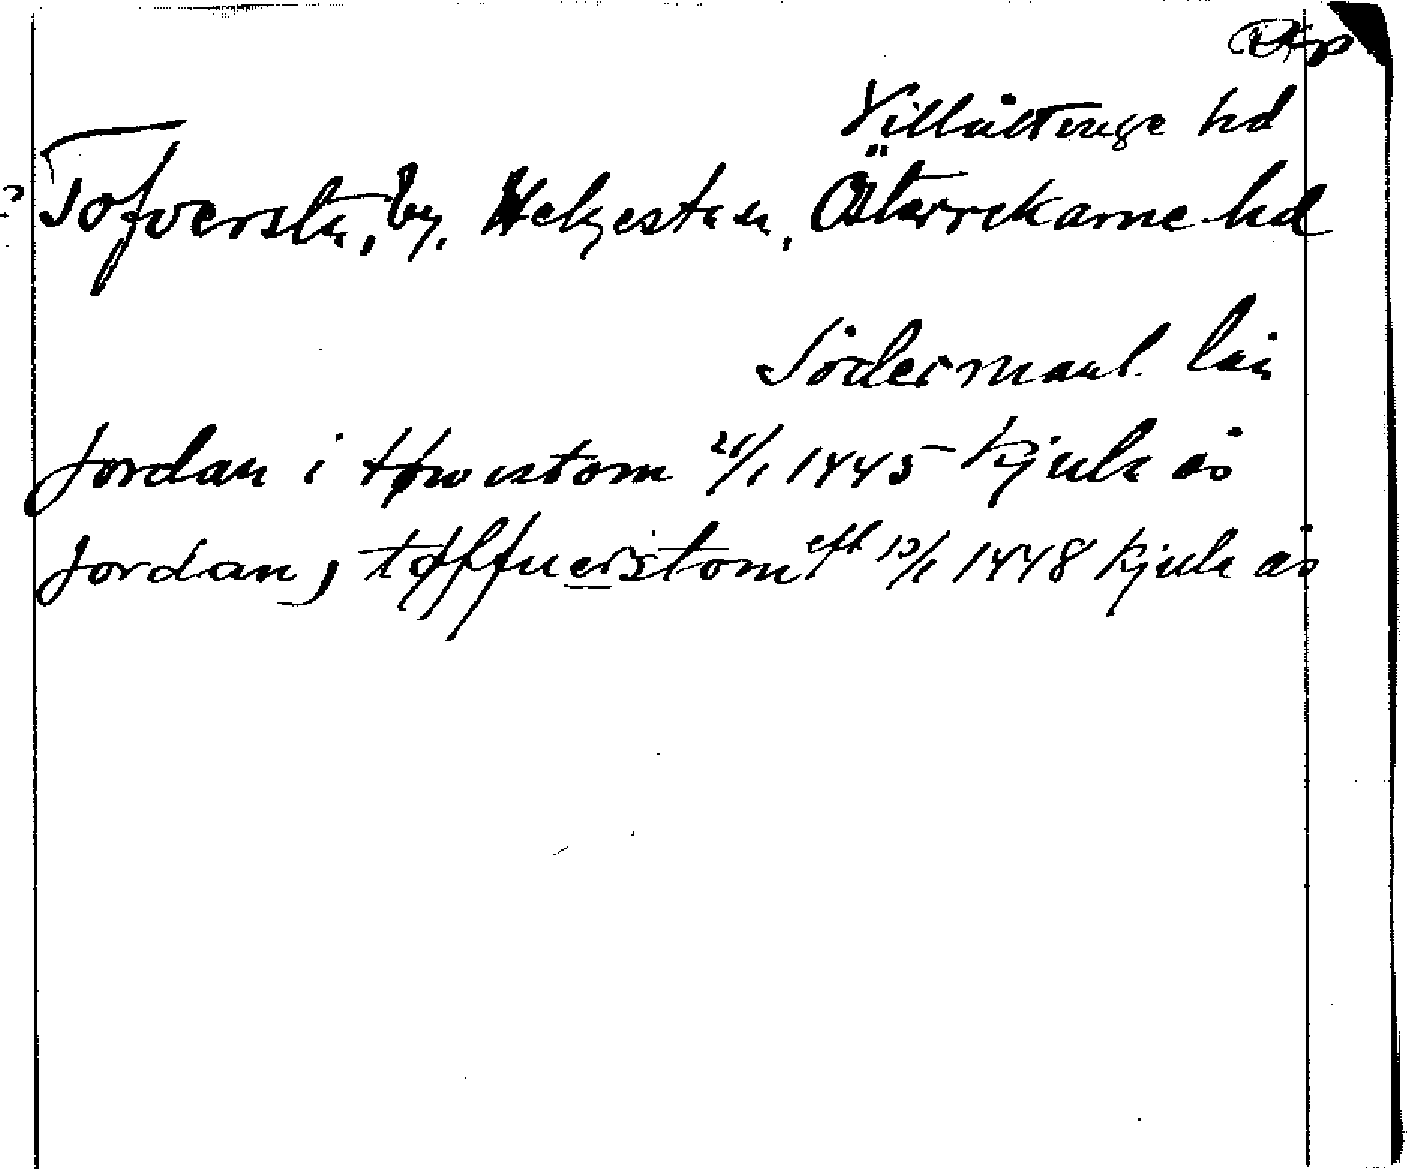 Villåttinge hd
? Tofversta, by, Helgesta sn, Österrekarne hd
Södermanl. län
Jordan i tøwistom 21/1 1445 Kjula ås
Jordan, tøffuerstom eft 13/1 1448 Kjula ås